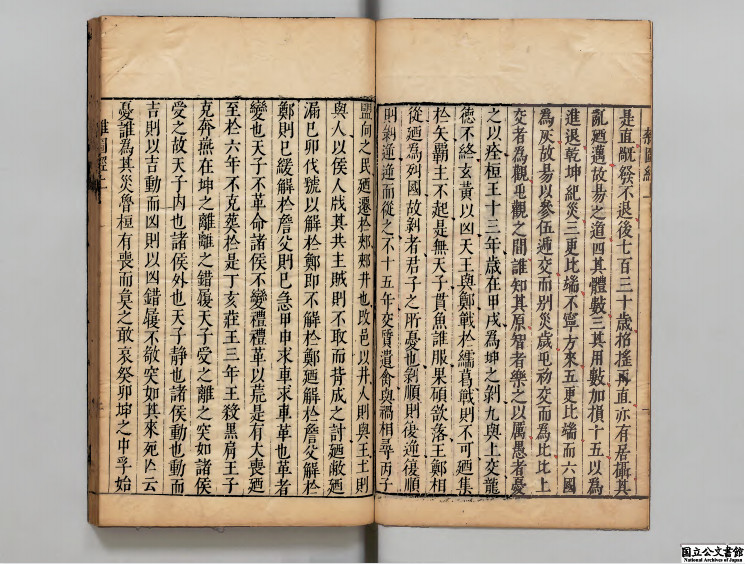 圖經
是直
發不退後七百三十歲招搖再直亦有居攝其
亂廼邁故易之道四其體數三其用數加損十五以為
進退乾坤紀災三更比端不寧方來五更比端而六國
為灰故易以參伍通交而別災歲屯初交而為比比上
交者為觀屯觀之間誰知其原智者樂之以厲愚者憂
之以痊桓王十三年歲在甲戌為坤之剝九與上交龍
德不終玄黃以凶天王與鄭戰於繻葛戰則不可廼集
於矢霸主不起是無天子貫魚誰服果碩欲落王鄭相
從廼為列國故剝者君子之所憂也剝順則後逆復順
則剝逆逆而從之不十五年交質遺禽與禍相尋丙子
盟向之民廼遷於郟郟井也改邑以井人則與王土則
與人以侯人戕其共主賊則不取而背成之討廼敝廼
漏巳卯代虢以解於鄭即不解於鄭廼解於詹父解於
鄭則巳緩解於詹父則巳急甲申求車求車革也革者
變也天子不革命諸侯不變禮禮革以荒是有大喪廼
至於六年不克葬於是丁亥莊王三年王殺黑肩王子
克奔燕在坤之離離之錯履天子受之離之突如諸侯
受之故天子內也諸侯外也天子靜也諸侯動也動而
吉則以吉動而凶則以凶錯履不敬突如其來死亾云
憂誰為其災魯桓有喪而莫之敢哀癸卯坤之中孚始
圖經上
国立公文書館
National Archives of Japan